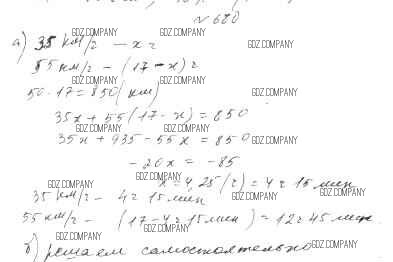 № 680
GDZ.COMPANY
а) 35 км/г — x г
GDZ.COMPANY
GDZ.COMPANY
55 км/г – (17 – x) г
GDZ.COMPANY GDZ.COMPANY
50 · 17 = 850 (км)
GDZ.COMPANY
35x + 55(17 – x) = 850
GDZ.COMPANY GDZ.COMPANY
35x + 935 – 55x = 850
GDZ.COMPANY
– 20x = – 85
GDZ.COMPANY GDZ.COMPANY
x = 4,25 (г) = 4 г 15 мин
35 км/г – 4 г 15 мин
GDZ.COMPANY GDZ.COMPANY
55 км/г – (17 – 4 г 15 мин) = 12 г 45 мин.
GDZ.COMPANY
GDZ.COMPANY
б) решаем самостоятельно
GDZ.COMPANY
GDZ.COMPANY